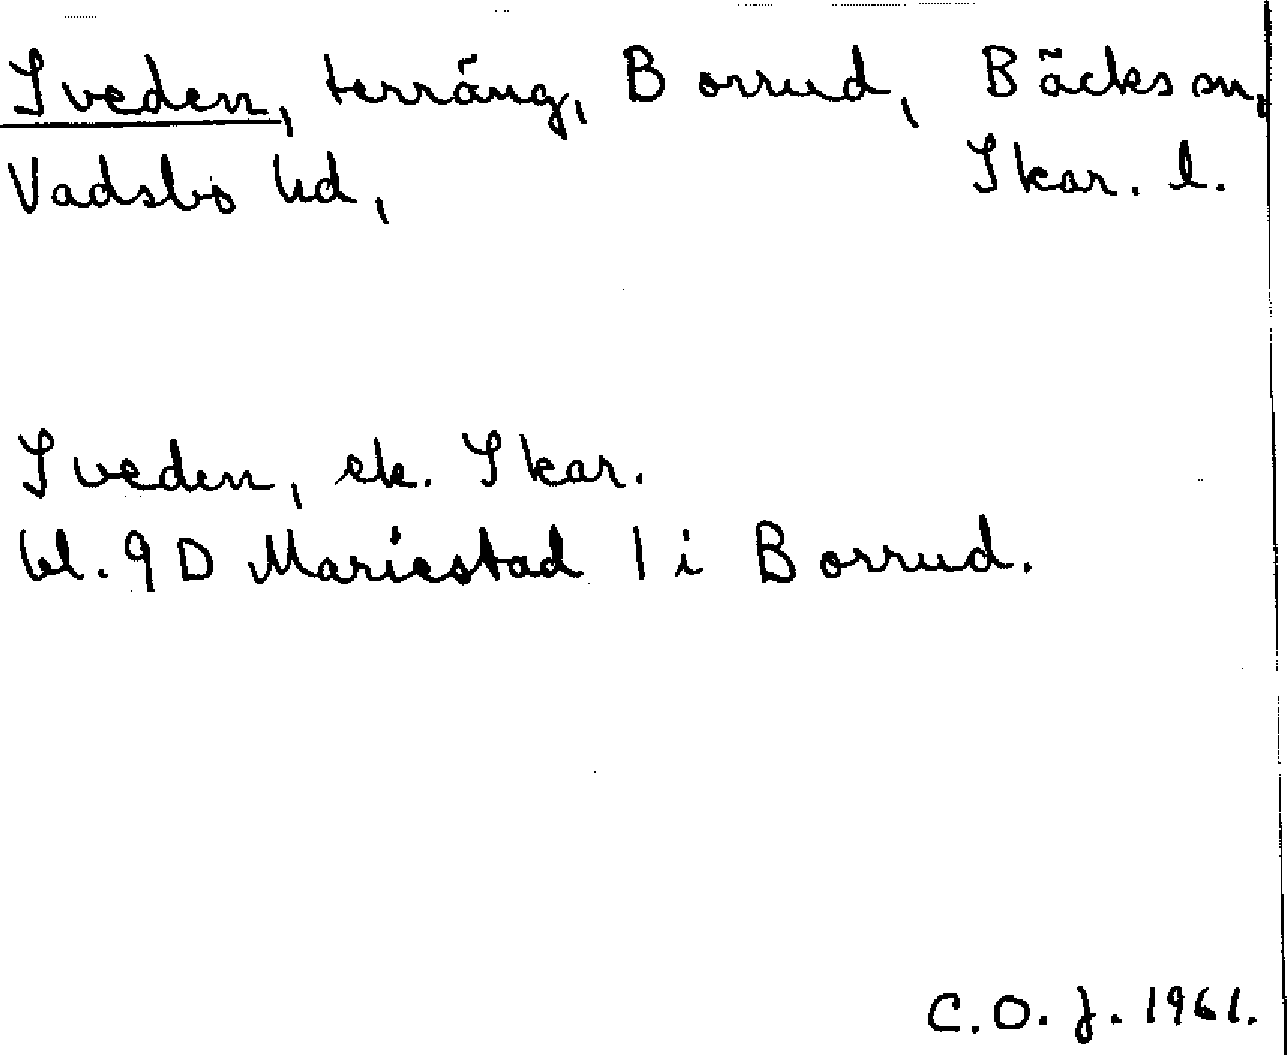 Sveden, terräng, Borrud, Bäcks sn,
Vadsbo hd, Skar. l.
Sveden, ek. Skar.
bl. 9 D Mariestad 1 i Borrud.
C.O.J. 1961.